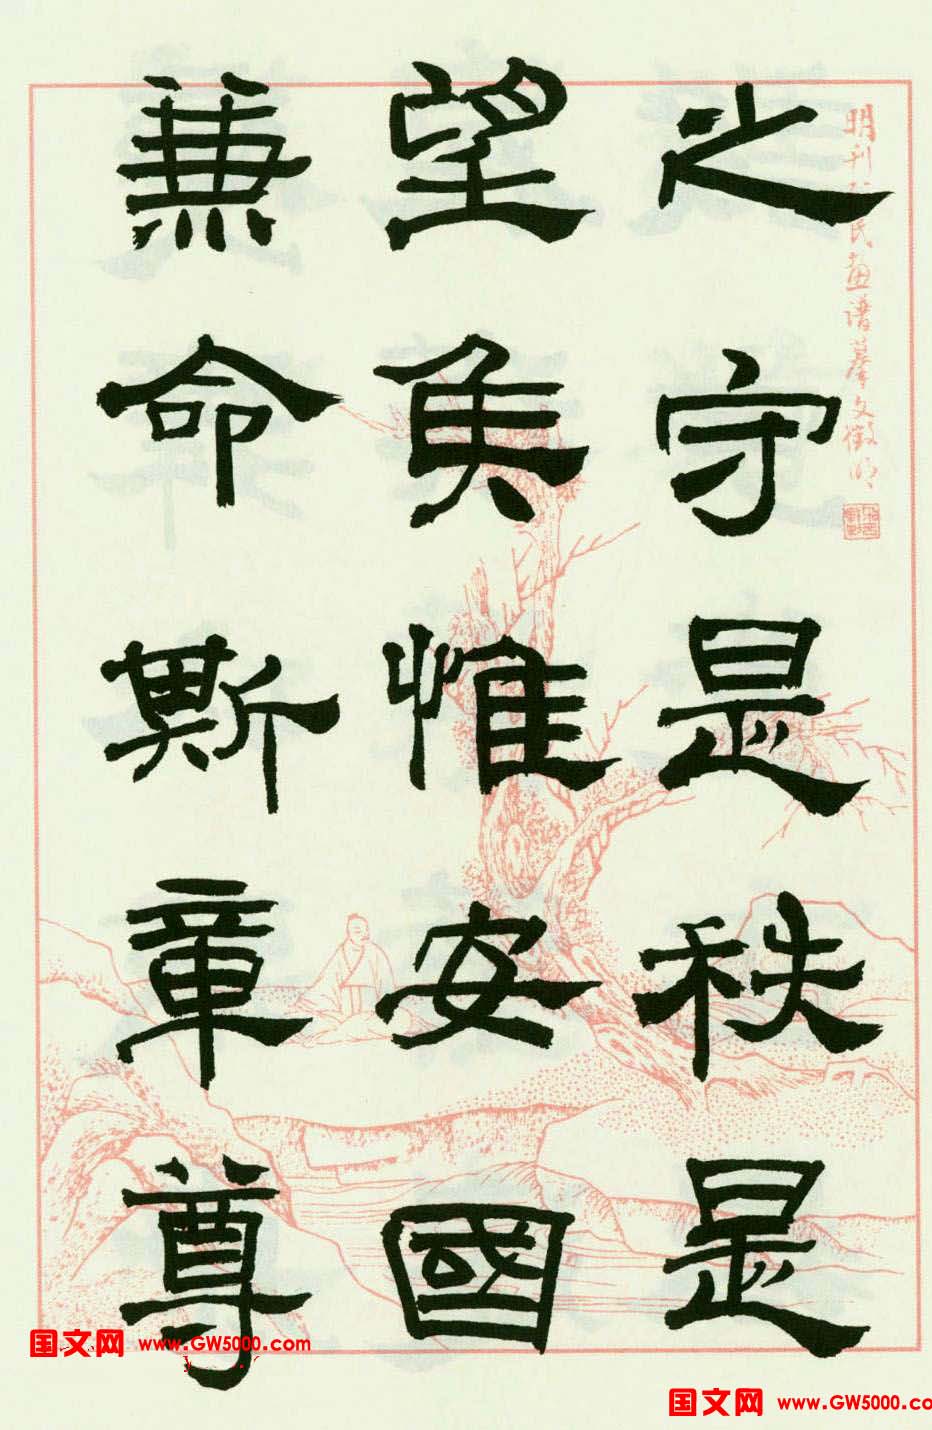 之守是秩是
望矦惟安國
兼命斯章尊
明刊
民画谱摹文徵明
国文网 www.GW5000.com
国文网 www.GW5000.co